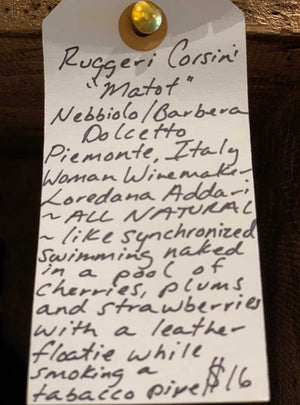 Ruggeri Corsini
"Matot"
Nebbiolo/Barbera
Dolcetto
Piemonte, Italy
Woman Winemaker
Loredana Addari
~ ALL NATURAL
~ like synchronized
swimming naked
in a pool of
cherries, plums
and strawberries
with a leather
floatie while
smoking a
tobacco pipe $16